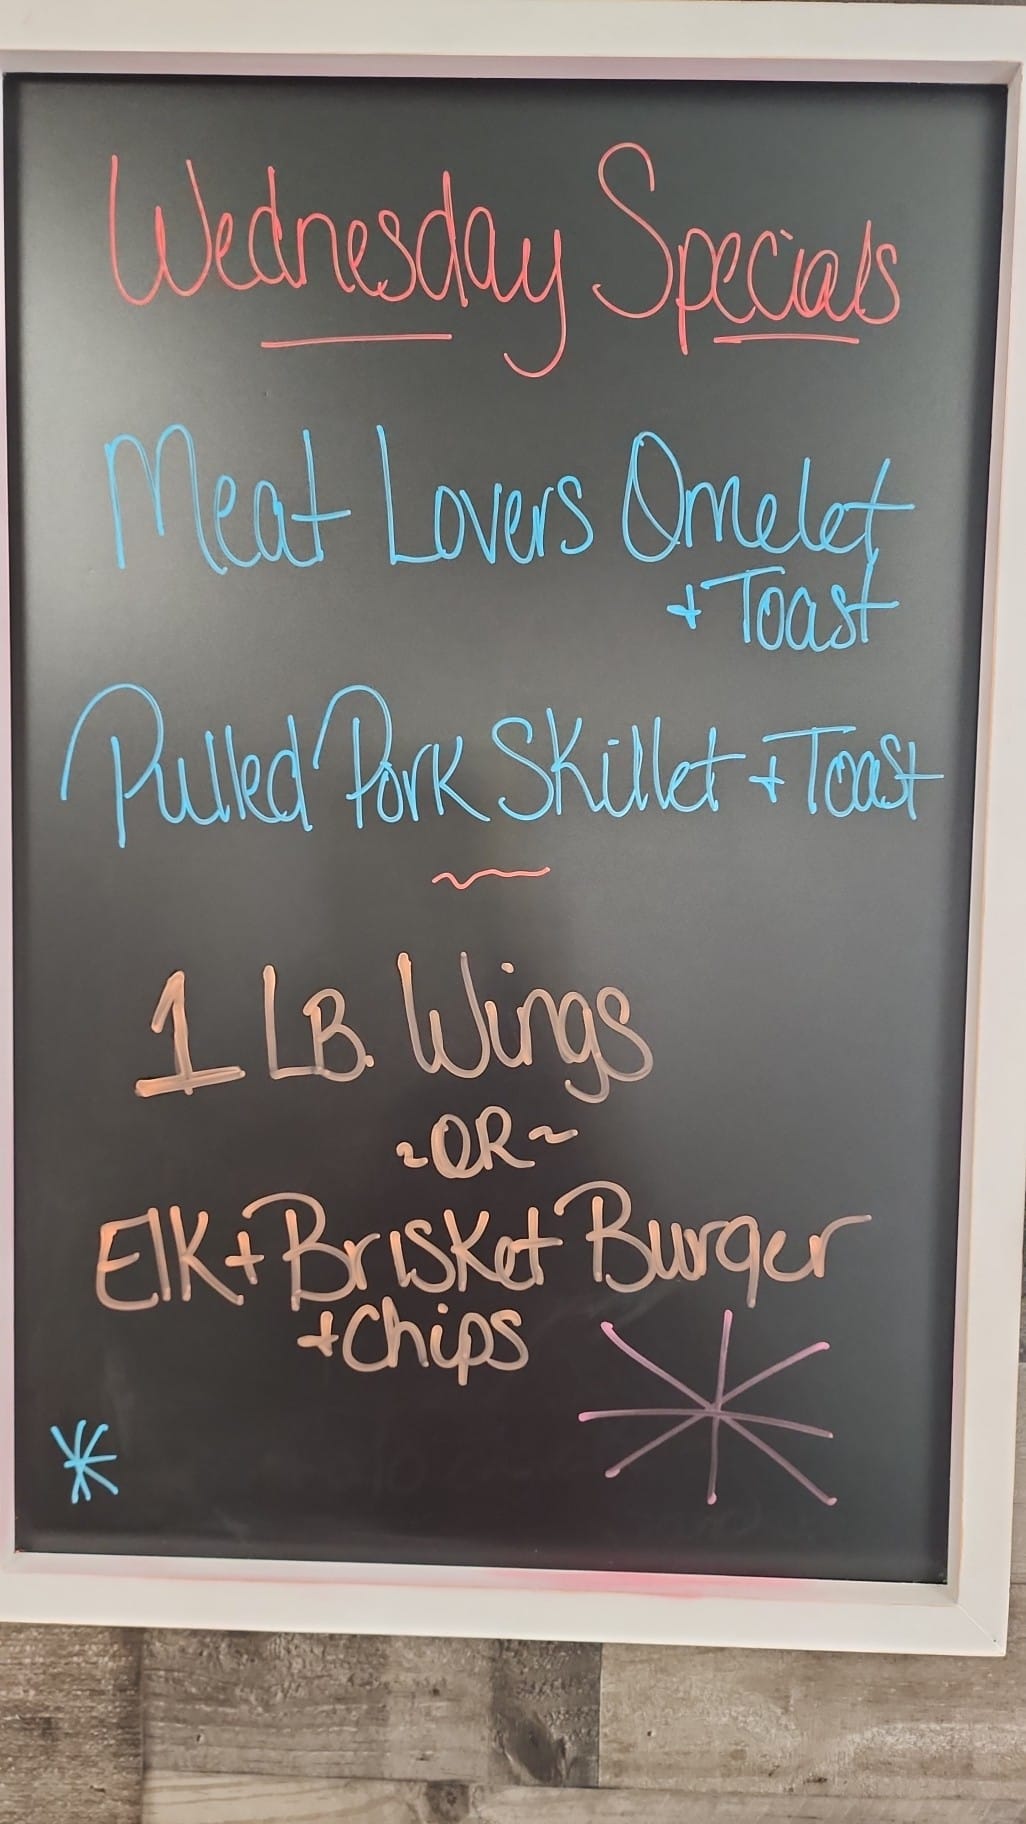 Wednesday Specials
Meat Lovers Omelet
+ Toast
Pulled Pork Skillet + Toast
1 LB. Wings
~OR~
Elk + Brisket Burger
+ Chips